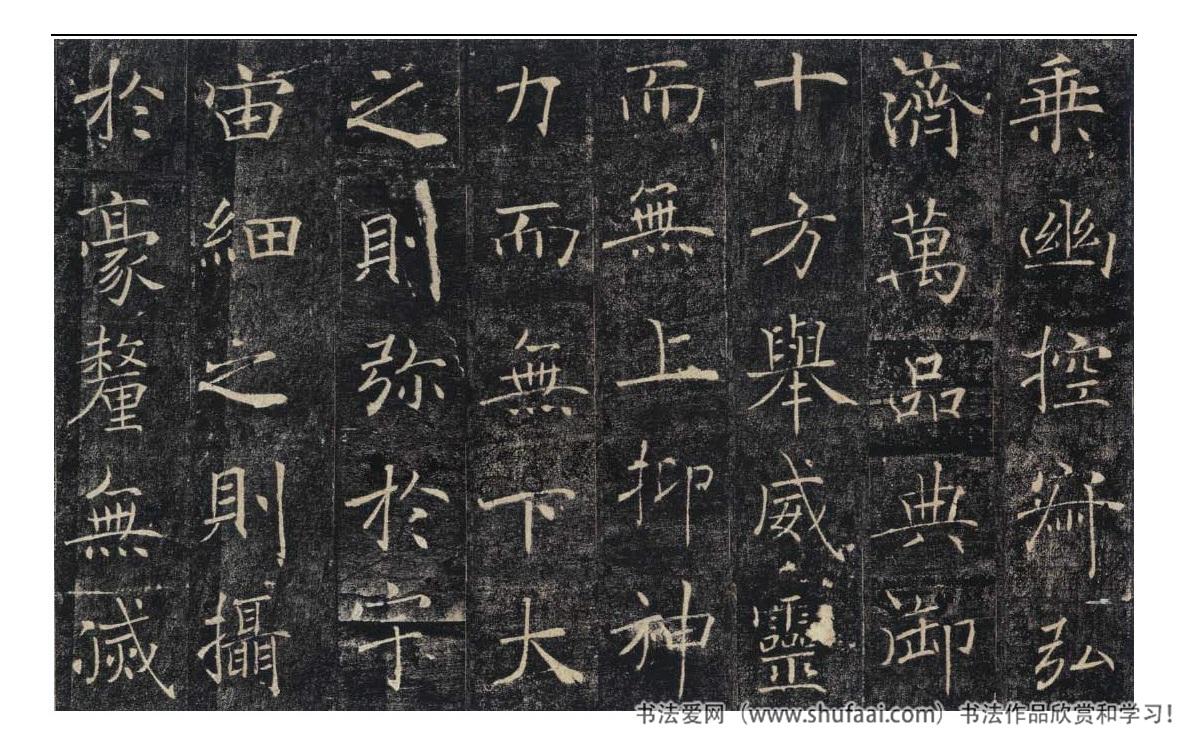 乗幽控寂弘
濟萬品典御
十方舉威靈
而無上抑神
力而無下大
之則弥於宇
宙細之則攝
於豪釐無滅
书法爱网（www.shufaai.com）书法作品欣赏和学习！